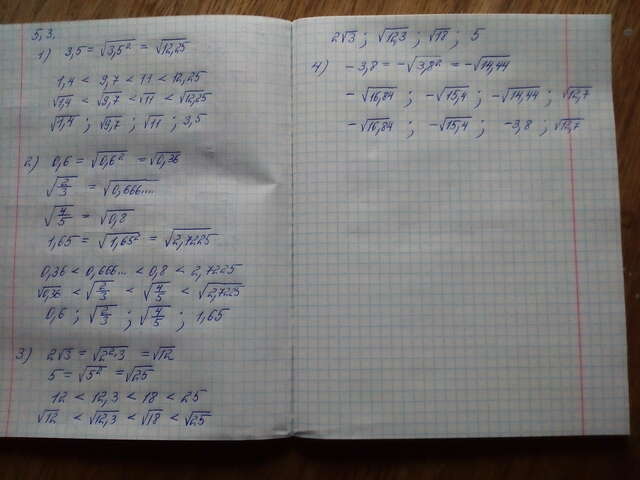 5,3.
1) 3,5 = √3,5² = √12,25
1,4 < 9,7 < 11 < 12,25
√1,4 < √9,7 < √11 < √12,25
√1,4 ; √9,7 ; √11 ; 3,5
2) 0,6 = √0,6² = √0,36
√2/3 = √0,666....
√4/5 = √0,8
1,65 = √1,65² = √2,7225
0,36 < 0,666... < 0,8 < 2,7225
√0,36 < √2/3 < √4/5 < √2,7225
0,6 ; √2/3 ; √4/5 ; 1,65
3) 2√3 = √2²·3 = √12
5 = √5² = √25
12 < 12,3 < 18 < 25
√12 < √12,3 < √18 < √25
2√3 ; √12,3 ; √18 ; 5
4) -3,8 = -√3,8² = -√14,44
-√16,84 ; -√15,4 ; -√14,44 ; √12,7
-√16,84 ; -√15,4 ; -3,8 ; √12,7